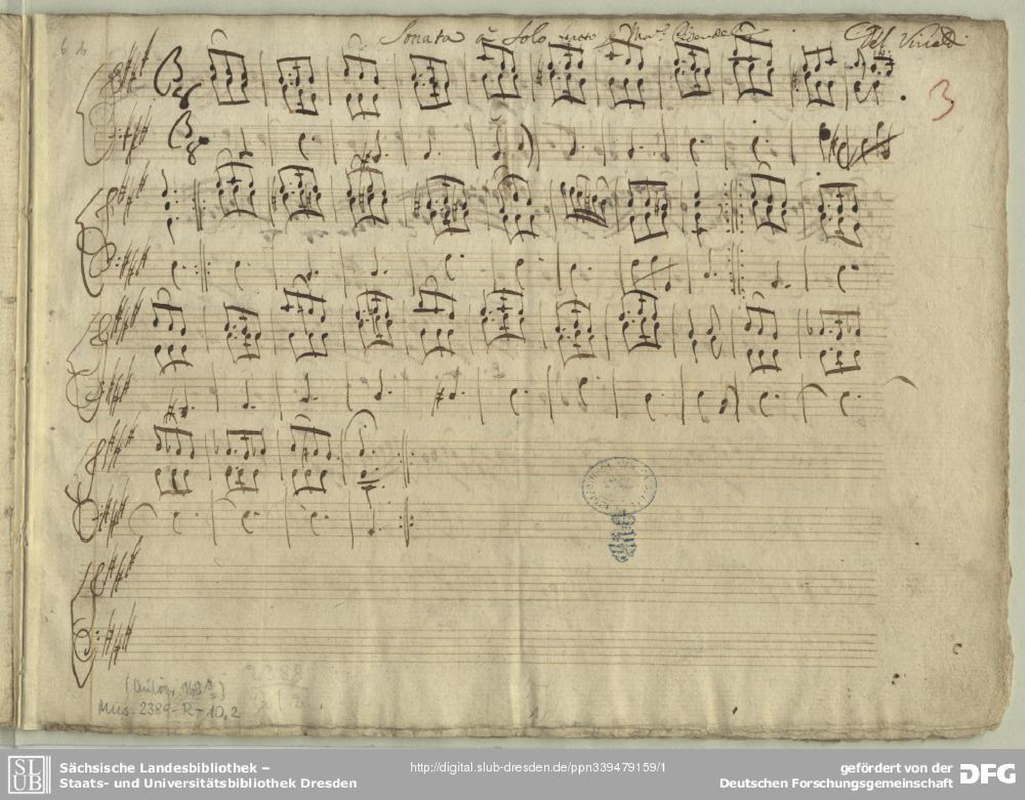 Sonata à Solo facto p Mon.r Pisendel Del Vivaldi
3
Mus. 2389-R-10,2
SLUB
Sächsische Landesbibliothek –
Staats- und Universitätsbibliothek Dresden
http://digital.slub-dresden.de/ppn339479159/1
gefördert von der
Deutschen Forschungsgemeinschaft
DFG